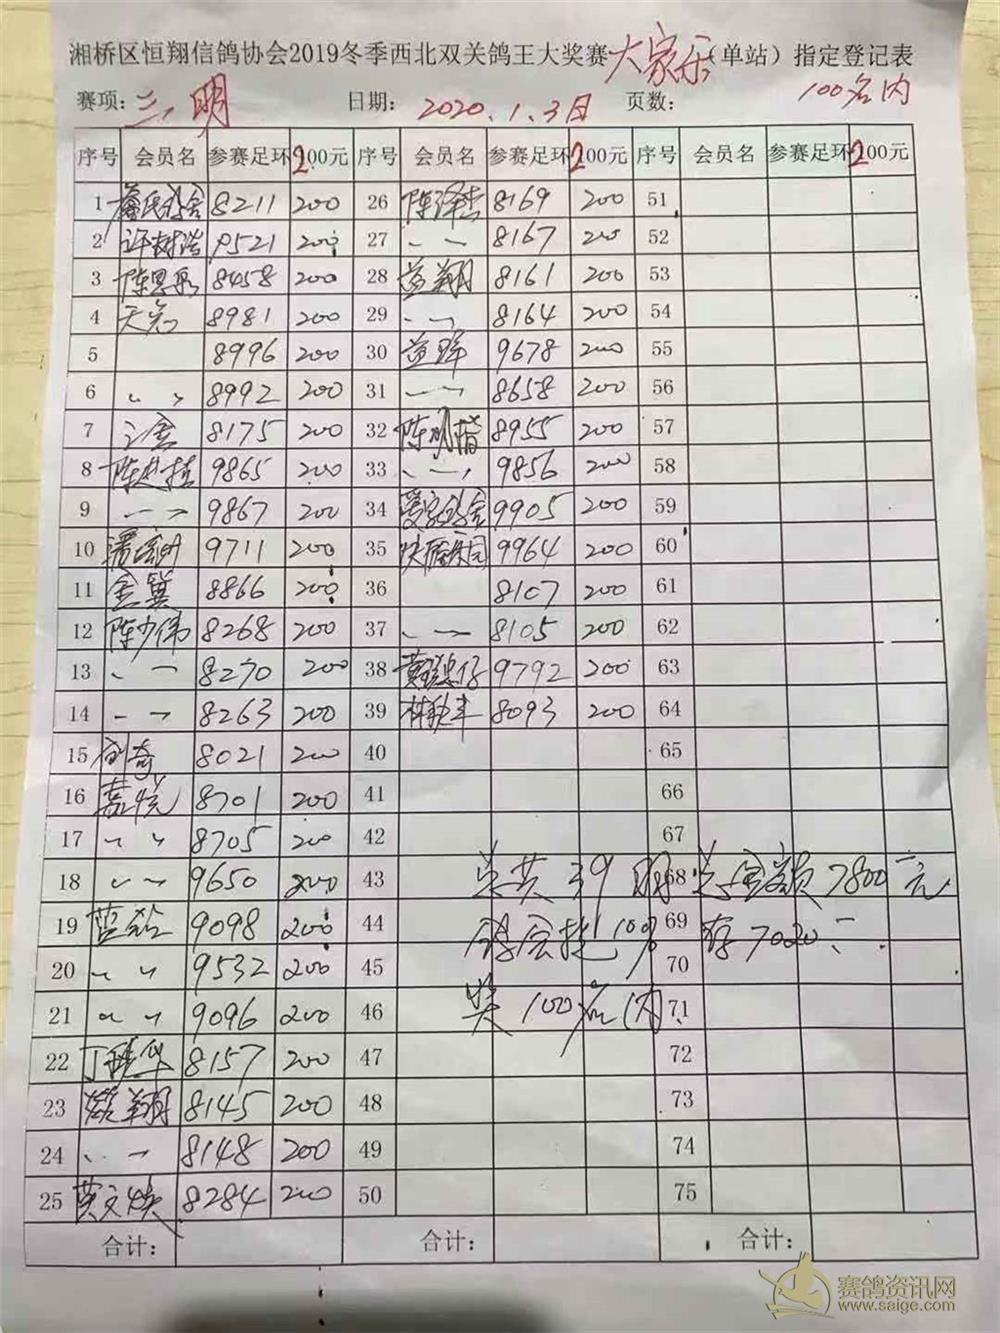 湘桥区恒翔信鸽协会2019冬季西北双关鸽王大奖赛 大家乐 (单站) 指定登记表
赛项: 三明 日期: 2020.1.3日 页数: 100名内
序号 会员名 参赛足环 200元 序号 会员名 参赛足环 200元 序号 会员名 参赛足环 200元
1 8211 200 26 陈泽杰 8169 200 51
2 9521 200 27 〃 8167 200 52
3 8458 200 28 益翔 8161 200 53
4 8981 200 29 〃 8164 200 54
5 8996 200 30 9678 200 55
6 〃 8992 200 31 〃 8658 200 56
7 8175 200 32 8955 200 57
8 9865 200 33 〃 9856 200 58
9 〃 9867 200 34 9905 200 59
10 9711 200 35 9964 200 60
11 金冀 8866 200 36 8107 200 61
12 陈少伟 8268 200 37 〃 8105 200 62
13 〃 8270 200 38 9792 200 63
14 〃 8263 200 39 8093 200 64
15 8021 200 40 65
16 嘉悦 8701 200 41 66
17 〃 8705 200 42 67
18 〃 9650 200 43 68
19 蓝钻 9098 200 44 69
20 〃 9532 200 45 70
21 〃 9096 200 46 71
22 8157 200 47 72
23 8145 200 48 73
24 〃 8148 200 49 74
25 黄文焕 8284 200 50 75
总共39 总金额7800元
10% 存7020
奖100名内
合计: 合计: 合计:
赛鸽资讯网
www.saige.com